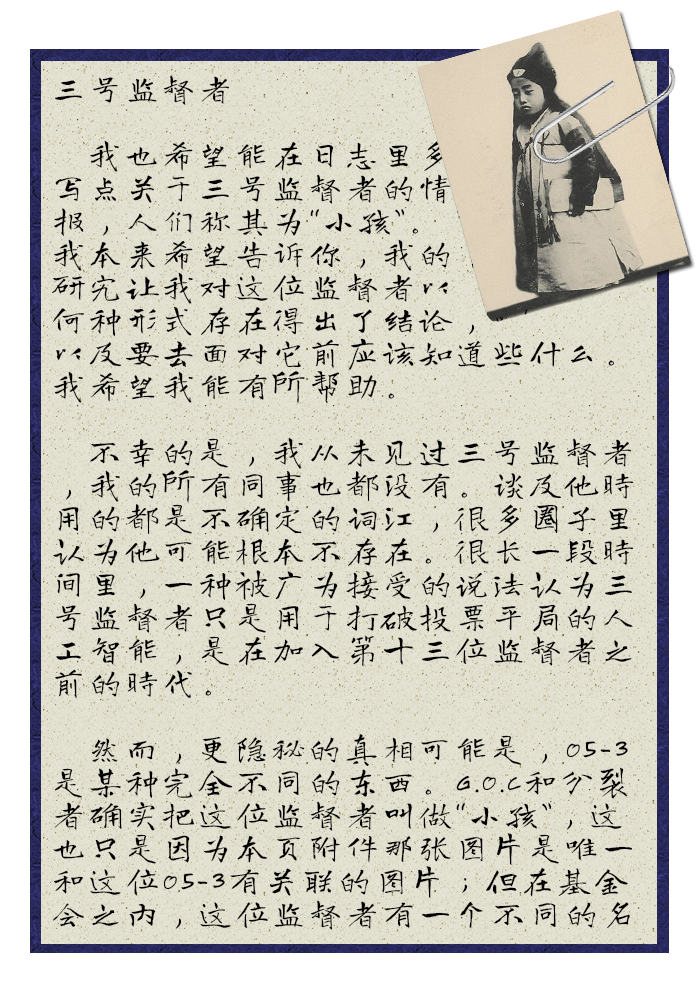 三号监督者
我也希望能在日志里多
写点关于三号监督者的情
报，人们称其为“小孩”。
我本来希望告诉你，我的
研究让我对这位监督者以
何种形式存在得出了结论，
以及要去面对它前应该知道些什么。
我希望我能有所帮助。
不幸的是，我从未见过三号监督者
，我的所有同事也都没有。谈及他時
用的都是不确定的词汇，很多圈子里
认为他可能根本不存在。很长一段時
间里，一种被广为接受的说法认为三
号监督者只是用于打破投票平局的人
工智能，是在加入第十三位监督者之
前的時代。
然而，更隐秘的真相可能是，O5-3
是某种完全不同的东西。G.O.C和分裂
者确实把这位监督者叫做“小孩”，这
也只是因为本页附件那张图片是唯一
和这位O5-3有关联的图片；但在基金
会之内，这位监督者有一个不同的名